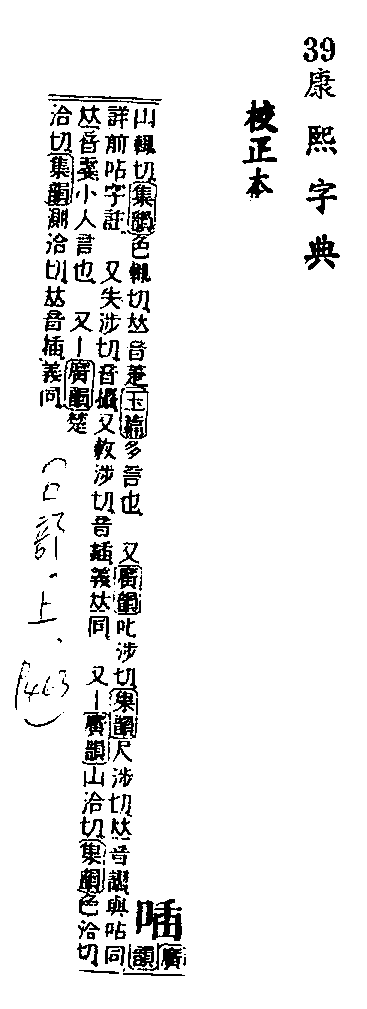 39康熙字典
校正本
喢
廣韻
山輒切集韻色輒切𠀤音萐玉篇多言也 又廣韻叱涉切集韻尺涉切𠀤音與呫同
詳前呫字註 又失涉切音攝又敕涉切音義𠀤同 又丨廣韻山洽切集韻色洽切
𠀤音翣小人言也 又丨廣韻楚
洽切集韻測洽切𠀤音插義同
(口部.上.P463)